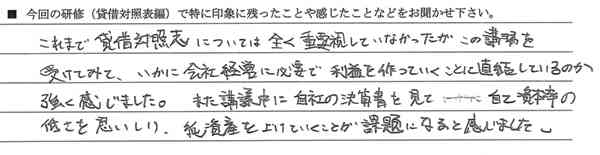 ■ 今回の研修（貸借対照表編）で特に印象に残ったことや感じたことなどをお聞かせ下さい。
これまで貸借対照表については全く重要視していなかったがこの講習を
受けてみて、いかに会社経営に必要で利益を作っていくことに直結しているのか
強く感じました。また講議中に自社の決算書を見て 自己資本率の
低さを思いしり、総資産を上げていくことが課題になると感じました。